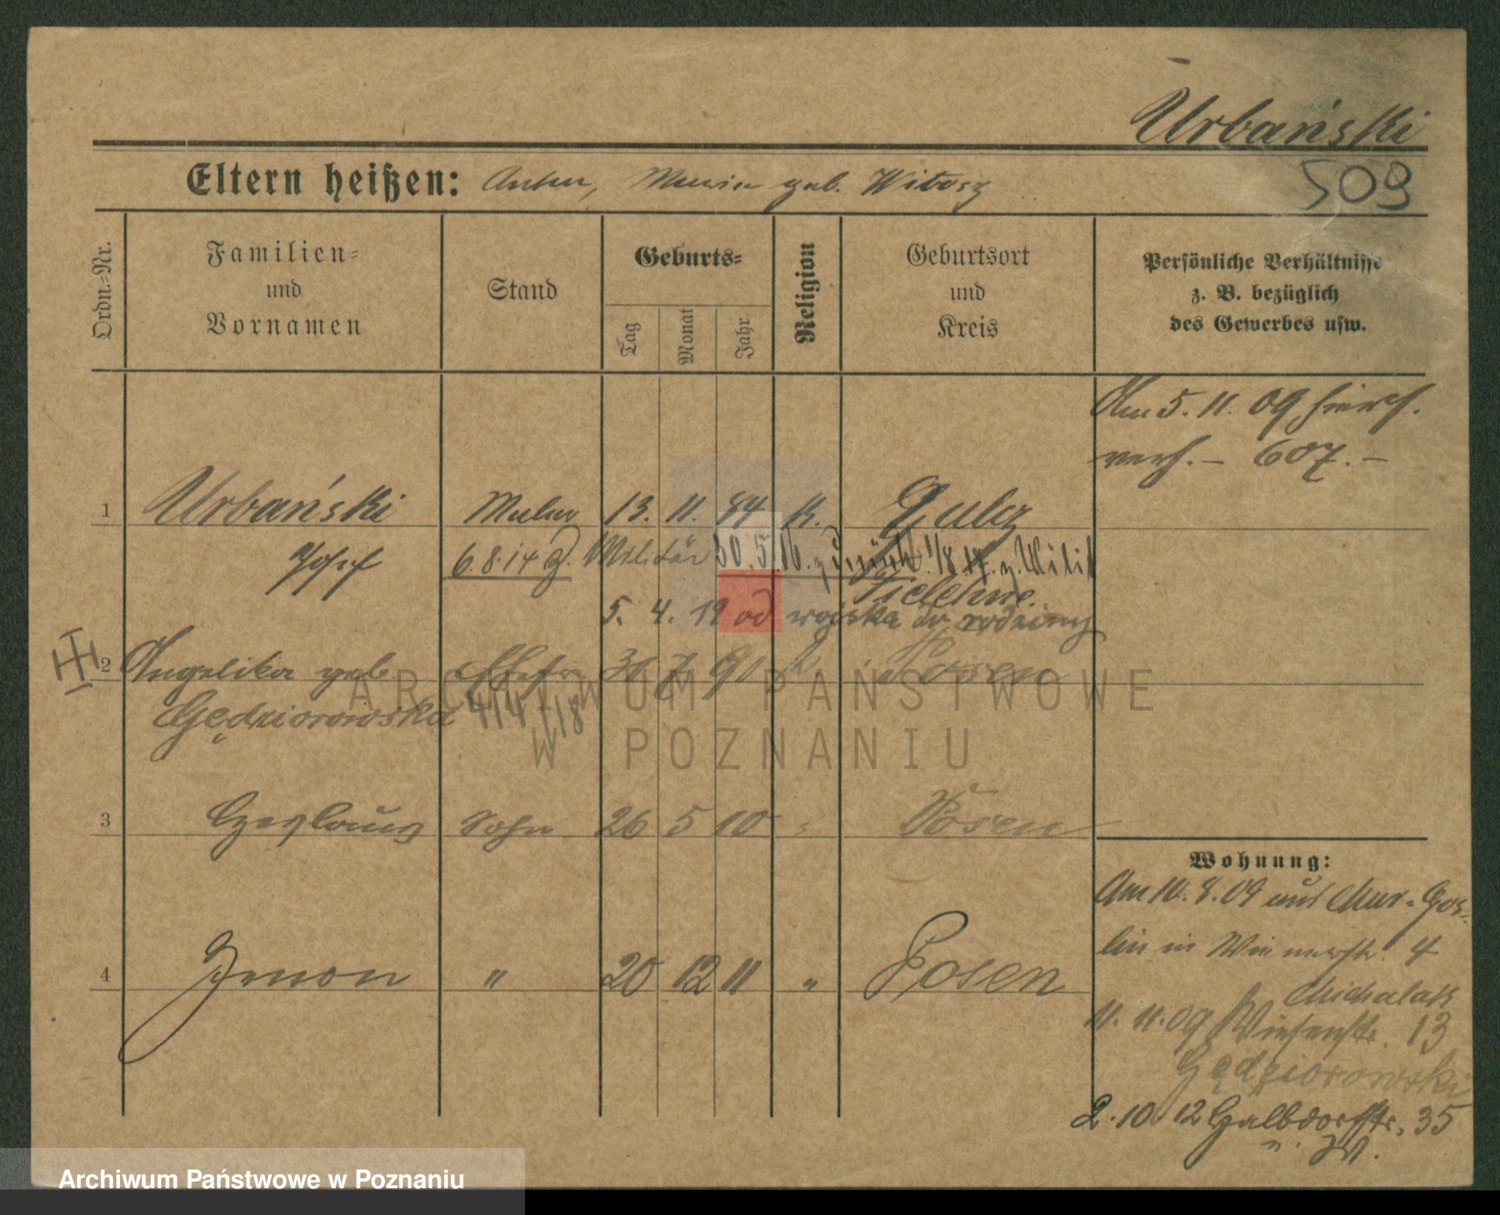 Urbański
509
Eltern heißen: Anton, Maria geb. Witosz
Ordn.-Nr.
Familien- und Vornamen
Stand
Geburts-
Tag
Monat
Jahr
Religion
Geburtsort und Kreis
Persönliche Verhältnisse
z. B. bezüglich
des Gewerbes usw.
Am 5. 11. 09 hiers.
verh. – 607. –
1 Urbański Maler 13. 11. 84 k.
Josef 6.8.14 z. Militär 30.5.16. zurück. 1/8 17. z. Milit
Filehne.
5. 4. 19 od wojska do rodziny
2 Angelika geb Ehefr 7 91 k Posen
Gędziorowska 4/4 18
3 Czeslaus Sohn 26 5 10 " Posen
4 Zenon " 20 12 11 " Posen
Wohnung:
Am 10. 8. 09 aus Mur. Gos-
lin in 4
Michalak
11. 11. 09 Wiesenstr. 13
Gędziorowski
2. 10. 12 Gallbdorffstr. 35
ARCHIWUM PAŃSTWOWE
W POZNANIU
Archiwum Państwowe w Poznaniu